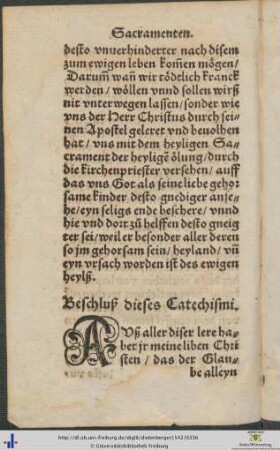 Sacramenten.
desto vnuerhinderter nach disem
zum ewigen leben kom̃en mögen/
Darum̃ wañ wir tödtlich kranck
werden/ wöllen vnnd sollen wirß
nit vnterwegen lassen/ sonder wie
vns der Herr Christus durch sei-
nen Apostel geleret vnd beuolhen
hat/ vns mit dem heyligen Sa-
crament der heyligẽ ölung/ durch
die kirchenpriester versehen/ auff
das vns Got als seine liebe gehor
same kinder desto gnediger anse-
he/ eyn seligs ende beschere/ vnnd
hie vnd dort zů helffen desto gneig
ter sei/ weil er besonder aller deren
so jm gehorsam sein/ heyland/ vñ
eyn vrsach worden ist des ewigen
heylß.
Beschluß dieses Catechismi.
AUß aller diser lere ha-
ber jr meine liben Chri
sten/ das der Glau-
be alleyn
http://dl.ub.uni-freiburg.de/diglit/dietenberger1542/0336
© Universitätsbibliothek Freiburg
Baden-Württemberg